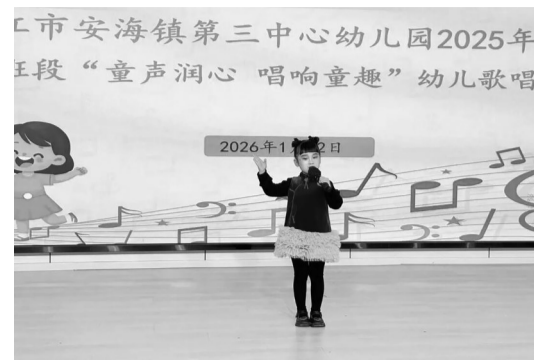 江市安海镇第三中心幼儿园2025年
班段“童声润心 唱响童趣”幼儿歌唱
2026年1 2日